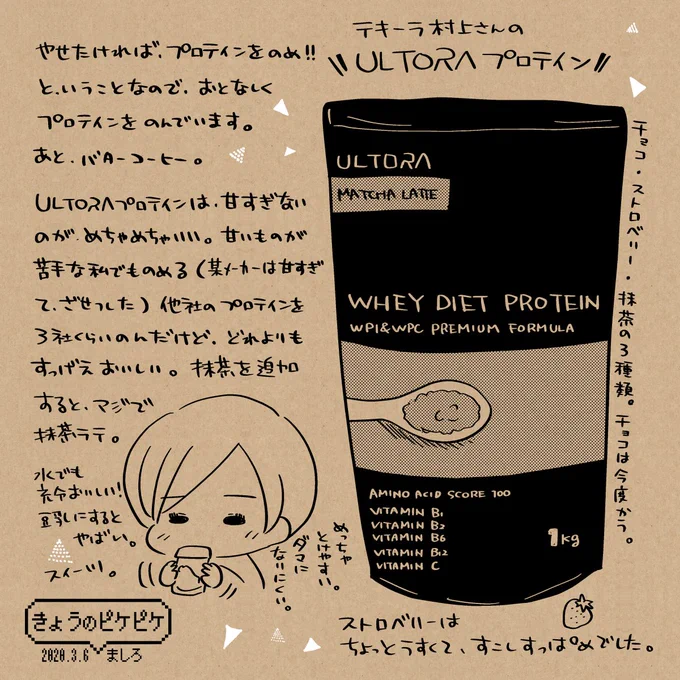 テキーラ村上さんの
ULTORAプロテイン
やせたければ、プロテインをのめ!!
と、いうことなので、おとなしく
プロテインをのんでいます。
あと、バターコーヒー。
ULTORAプロテインは、甘すぎない
のが、めちゃめちゃいい。甘いものが
苦手な私でものめる(某メーカーは甘すぎ
て、ざせつした)他社のプロテインを
3社くらいのんだけど、どれよりも
すっげえおいしい。抹茶を追加
すると、マジで
抹茶ラテ。
水でも
充分おいしい!
豆乳にすると
やばい。
スイーツ。
めっちゃ
とけやすい。
ダマに
なりにくい。
ULTORA
MATCHA LATTE
WHEY DIET PROTEIN
WPI&WPC PREMIUM FORMULA
AMINO ACID SCORE 100
VITAMIN B1
VITAMIN B2
VITAMIN B6
VITAMIN B12
VITAMIN C
1kg
チョコ・ストロベリー・抹茶の3種類。チョコは今度かう。
ストロベリーは
ちょっとうすくて、すこしすっぱめでした。
きょうのピケピケ
2020.3.6 ましろ